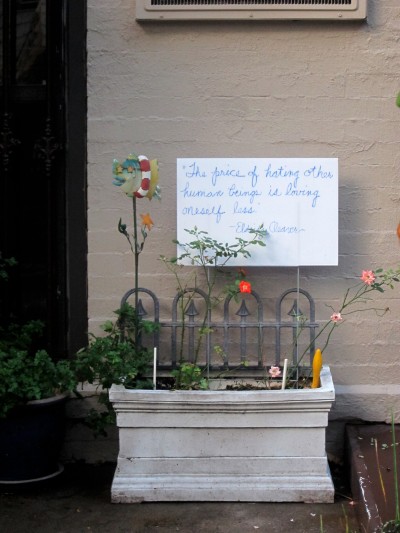 "The price of hating other
human beings is loving
oneself less"
- Cleaver